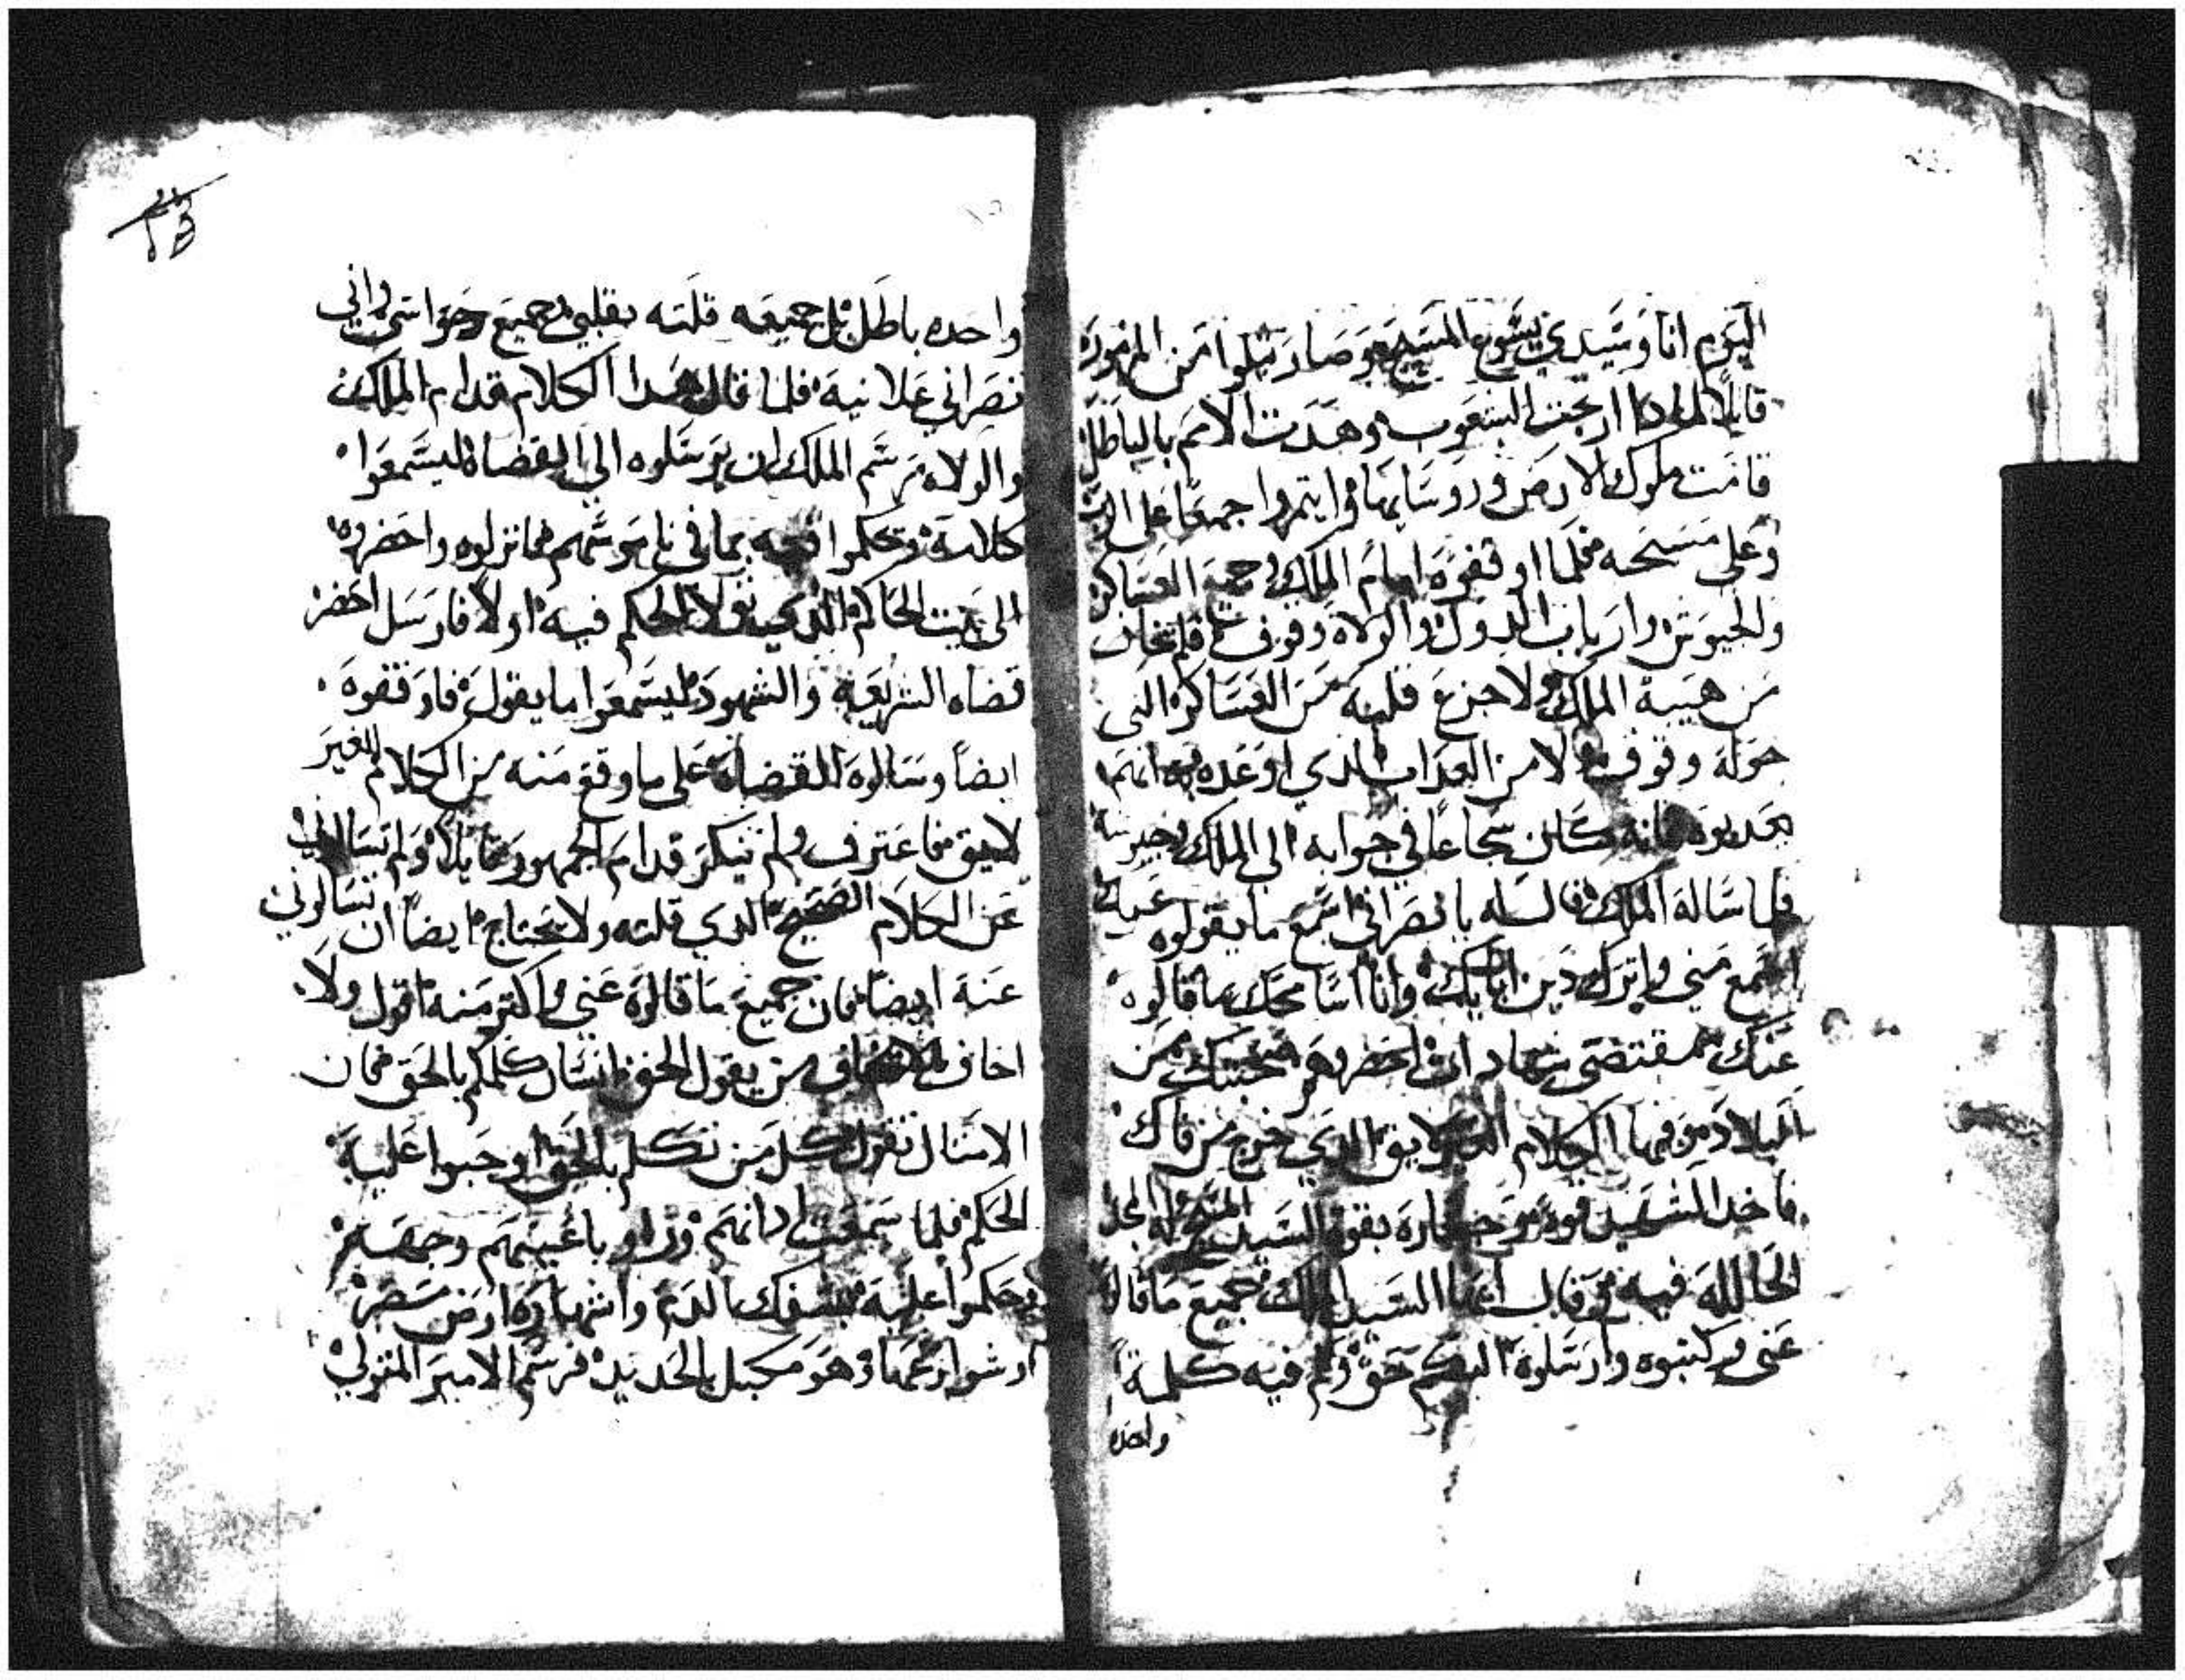 اليوم انا وسيدي يسوع المسيح وصار يتلوا من المزمور
قايلا لمادا ارتجت الشعوب وهدت الامم بالباطل
قامت ملوك الارض وروسايها وايتمروا جميعا على الرب
وعلى مسيحه فلما اوقفوه امام الملك وجميع العساكر
والجيوش وارباب الدول والولاه وقوف فلم يخاف
من هيبة الملك ولا جزع قلبه من العساكر التى
حوله وقوف ولا من العداب الدي اوعده به انهم
يعدبوه فانه كان شجاعا في جوابه الى الملك
فلما ساله الملك قال له يا نصراني اسمع ما يقولوه عنك
اسمع مني واترك دين ابايك وانا اسامحك بما قالوه
عنك بمقتضى من
البلاد وفيها الكلام الغير لايق الدي خرج من فاك
فاخد الشهيد قوه وحراره بقوة السيد المسيح له المجد
الحالله فيه وقال ايها السيد الملك جميع ما قالوه
عني وكتبوه وارسلوه اليكم حق ولم فيه كلمة
واحده
واحده باطل بل جميعه قلته بقلبي وجميع حواسي واني
نصراني علانيه فلما قال هدا الكلام قدام الملك
والولاه رسم الملك ان يرسلوه الى القضاه ليسمعوا
كلامه ويحكموا فيه بما في ناموسهم فانزلوه واحضروه
الى بيت الحاكم الدي الحكم فيه اولا فارسل احضر
قضاه الشريعه والشهود ليسمعوا ما يقول فاوقفوه
ايضا وسالوه القضاه على ما وقع منه من الكلام الغير
لايق فاعترف ولم ينكر قدام الجمهور قايلا ولم تسالوني
عن الكلام الصحيح الدي قلته ولا يحتاج ايضا ان تسالوني
عنه ايضا فان جميع ما قالوه عني واكتر منه اقول ولا
اخاف من يقول الحق انسان كلمكم بالحق فان
الامتال تقول كل من تكلم بالحق اوجبوا عليه
الحكم فلما سمعت ادانهم وراو باعينهم وجمعهم
وحكموا عليه بسفك الدم واشهاره ارض مصر
وهو مكبل بالحديد فرسم الامير المتولي